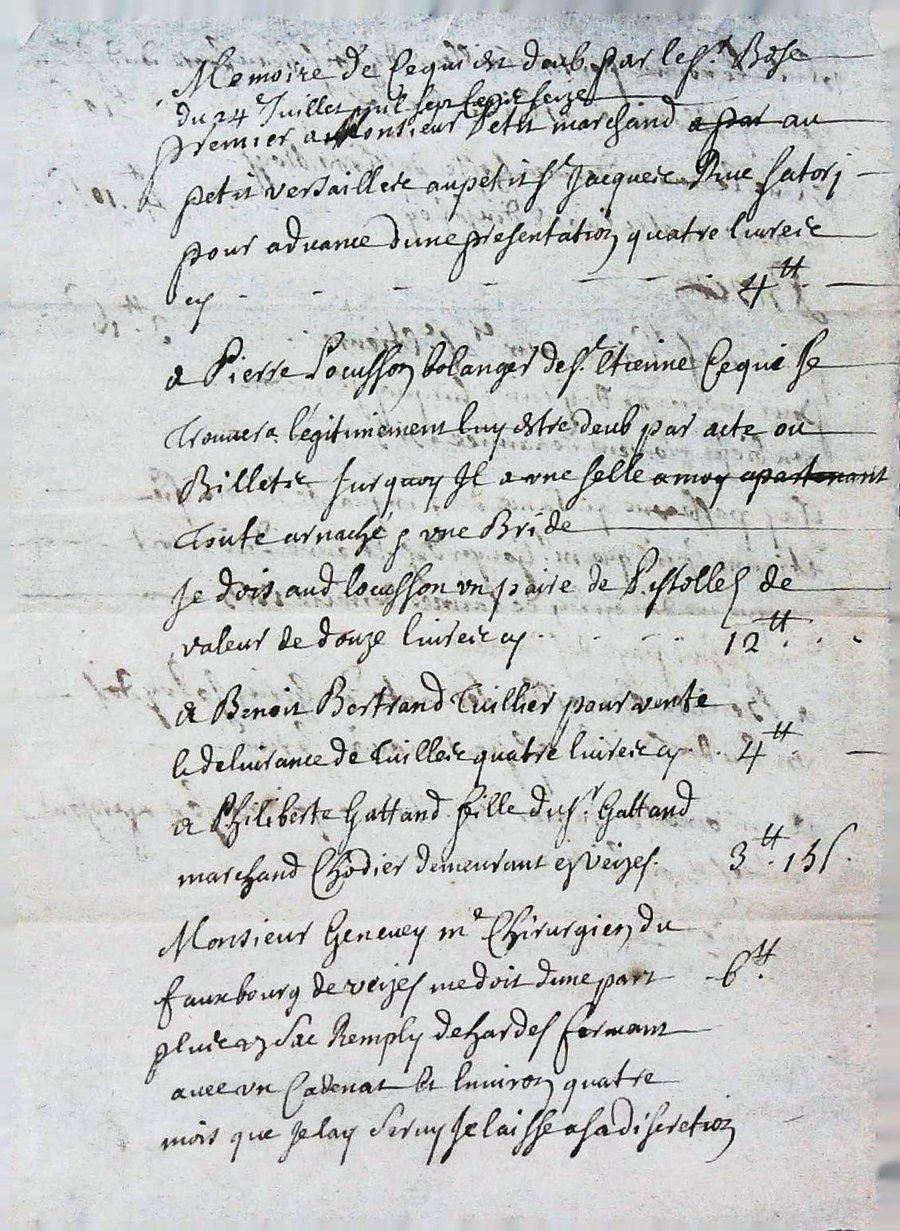 Memoire de Cequi est deub par le Sr. Bose
du 24e Juillet mil sept Cent seize
premier a Monsieur Petit marchand a par au
petit versaillese au petit St Jacques Rue Satorj
pour advance dune presentation quatre livres
cy 4tt
a Pierre Loeusson bolanger de St. Etienne Cequi se
trouvera légitimement luy estre deub par acte ou
Billets surquoy Il a vne selle a moy apartenant
toute arnaché & vne Bride
Je dois aud Loeusson vn paire de Pistolles de
valeur de douze livres cy 12tt
a Benoit Bertrand Tuillier pour vente
le deluirance de Tuilles quatre livres cy 4tt
a Philiberte Gattand fille du Sr. Gattand
marchand Chodier demeurant e veizes 3tt 15s
Monsieur Genevey me Chirurgien du
fauxbourg de veizes me doit dune part 6tt
plus un Sac Remply de hardes fermant
avec vn Cadenat Et Environ quatre
mois que Jelay Servy Je laisse a sa discretion